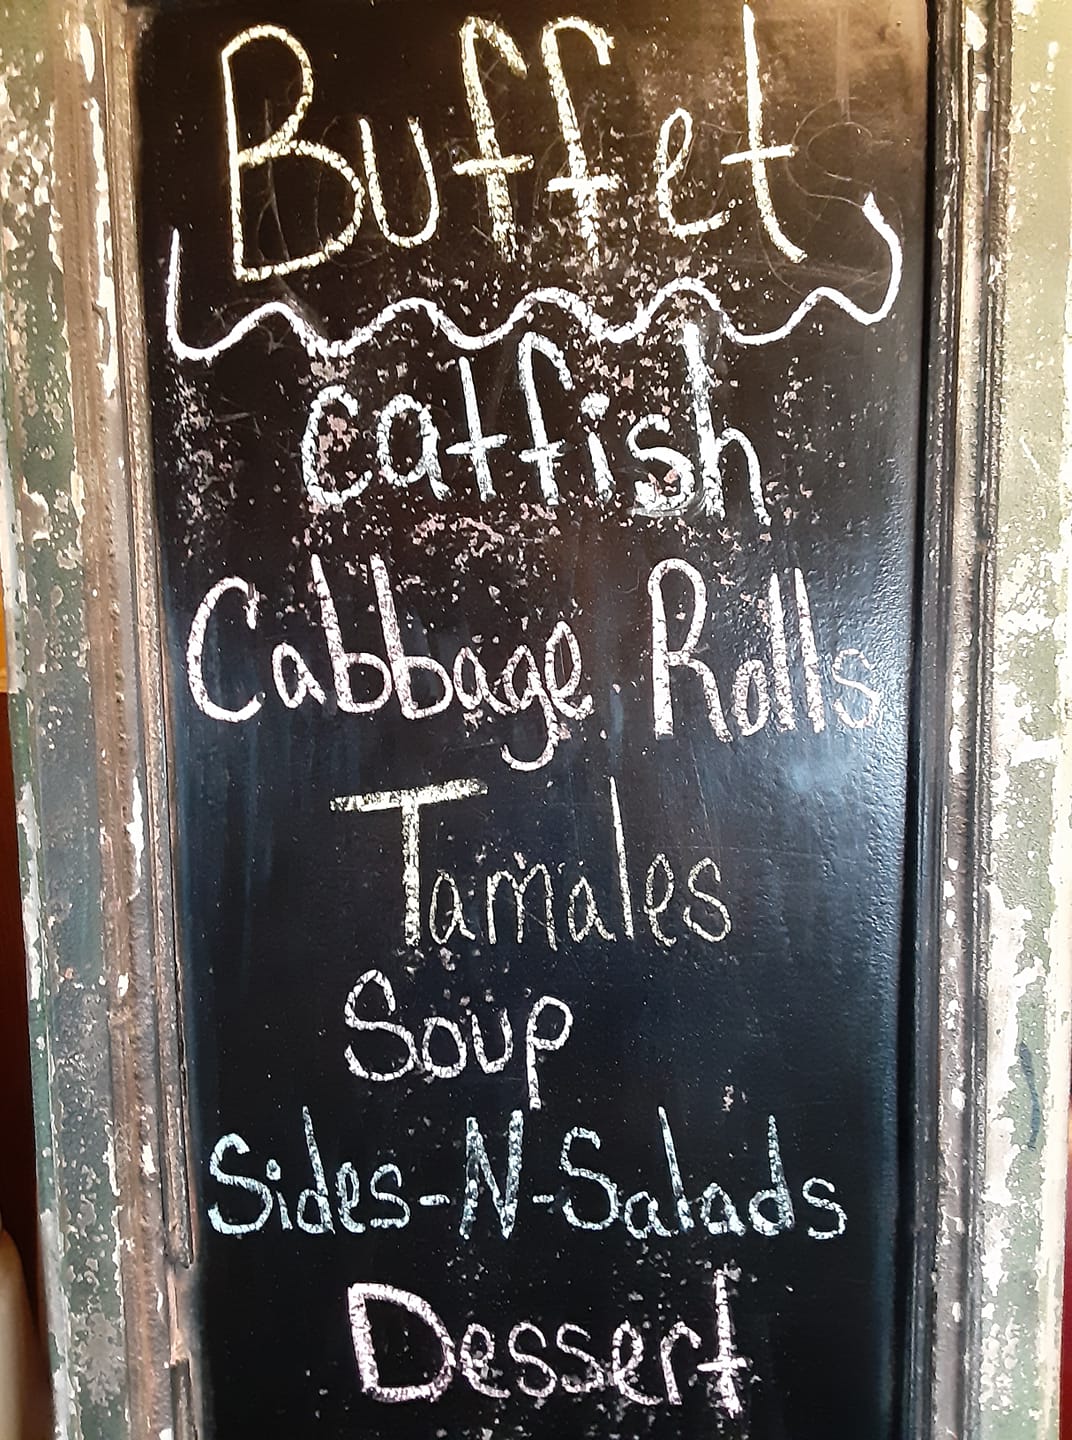 Buffet
Catfish
Cabbage Rolls
Tamales
Soup
Sides-N-Salads
Dessert